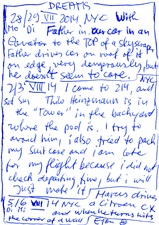 DREAMS
28/29 VII 2014 NYC With
Mo Di Father in our car in an
Elevator to the TOP of a skyscraper,
father drives car on roof of it
on edge, very dangerously, but
he doesn't seem to care.
NYC
2/3 VIII 14 I come to 219, and
Sat Sun Thilo Heinzmann is in
the "Tower" in the backyard
where the pool is, I try to
avoid him, also tried to pack
my suitcase and I am late
for my flight because i did not
check departing time, but i will
just make it! Horses driver
5/6 VIII 14 NYC a Citroen CX
Di Mi and when he turns into
the corner of a road